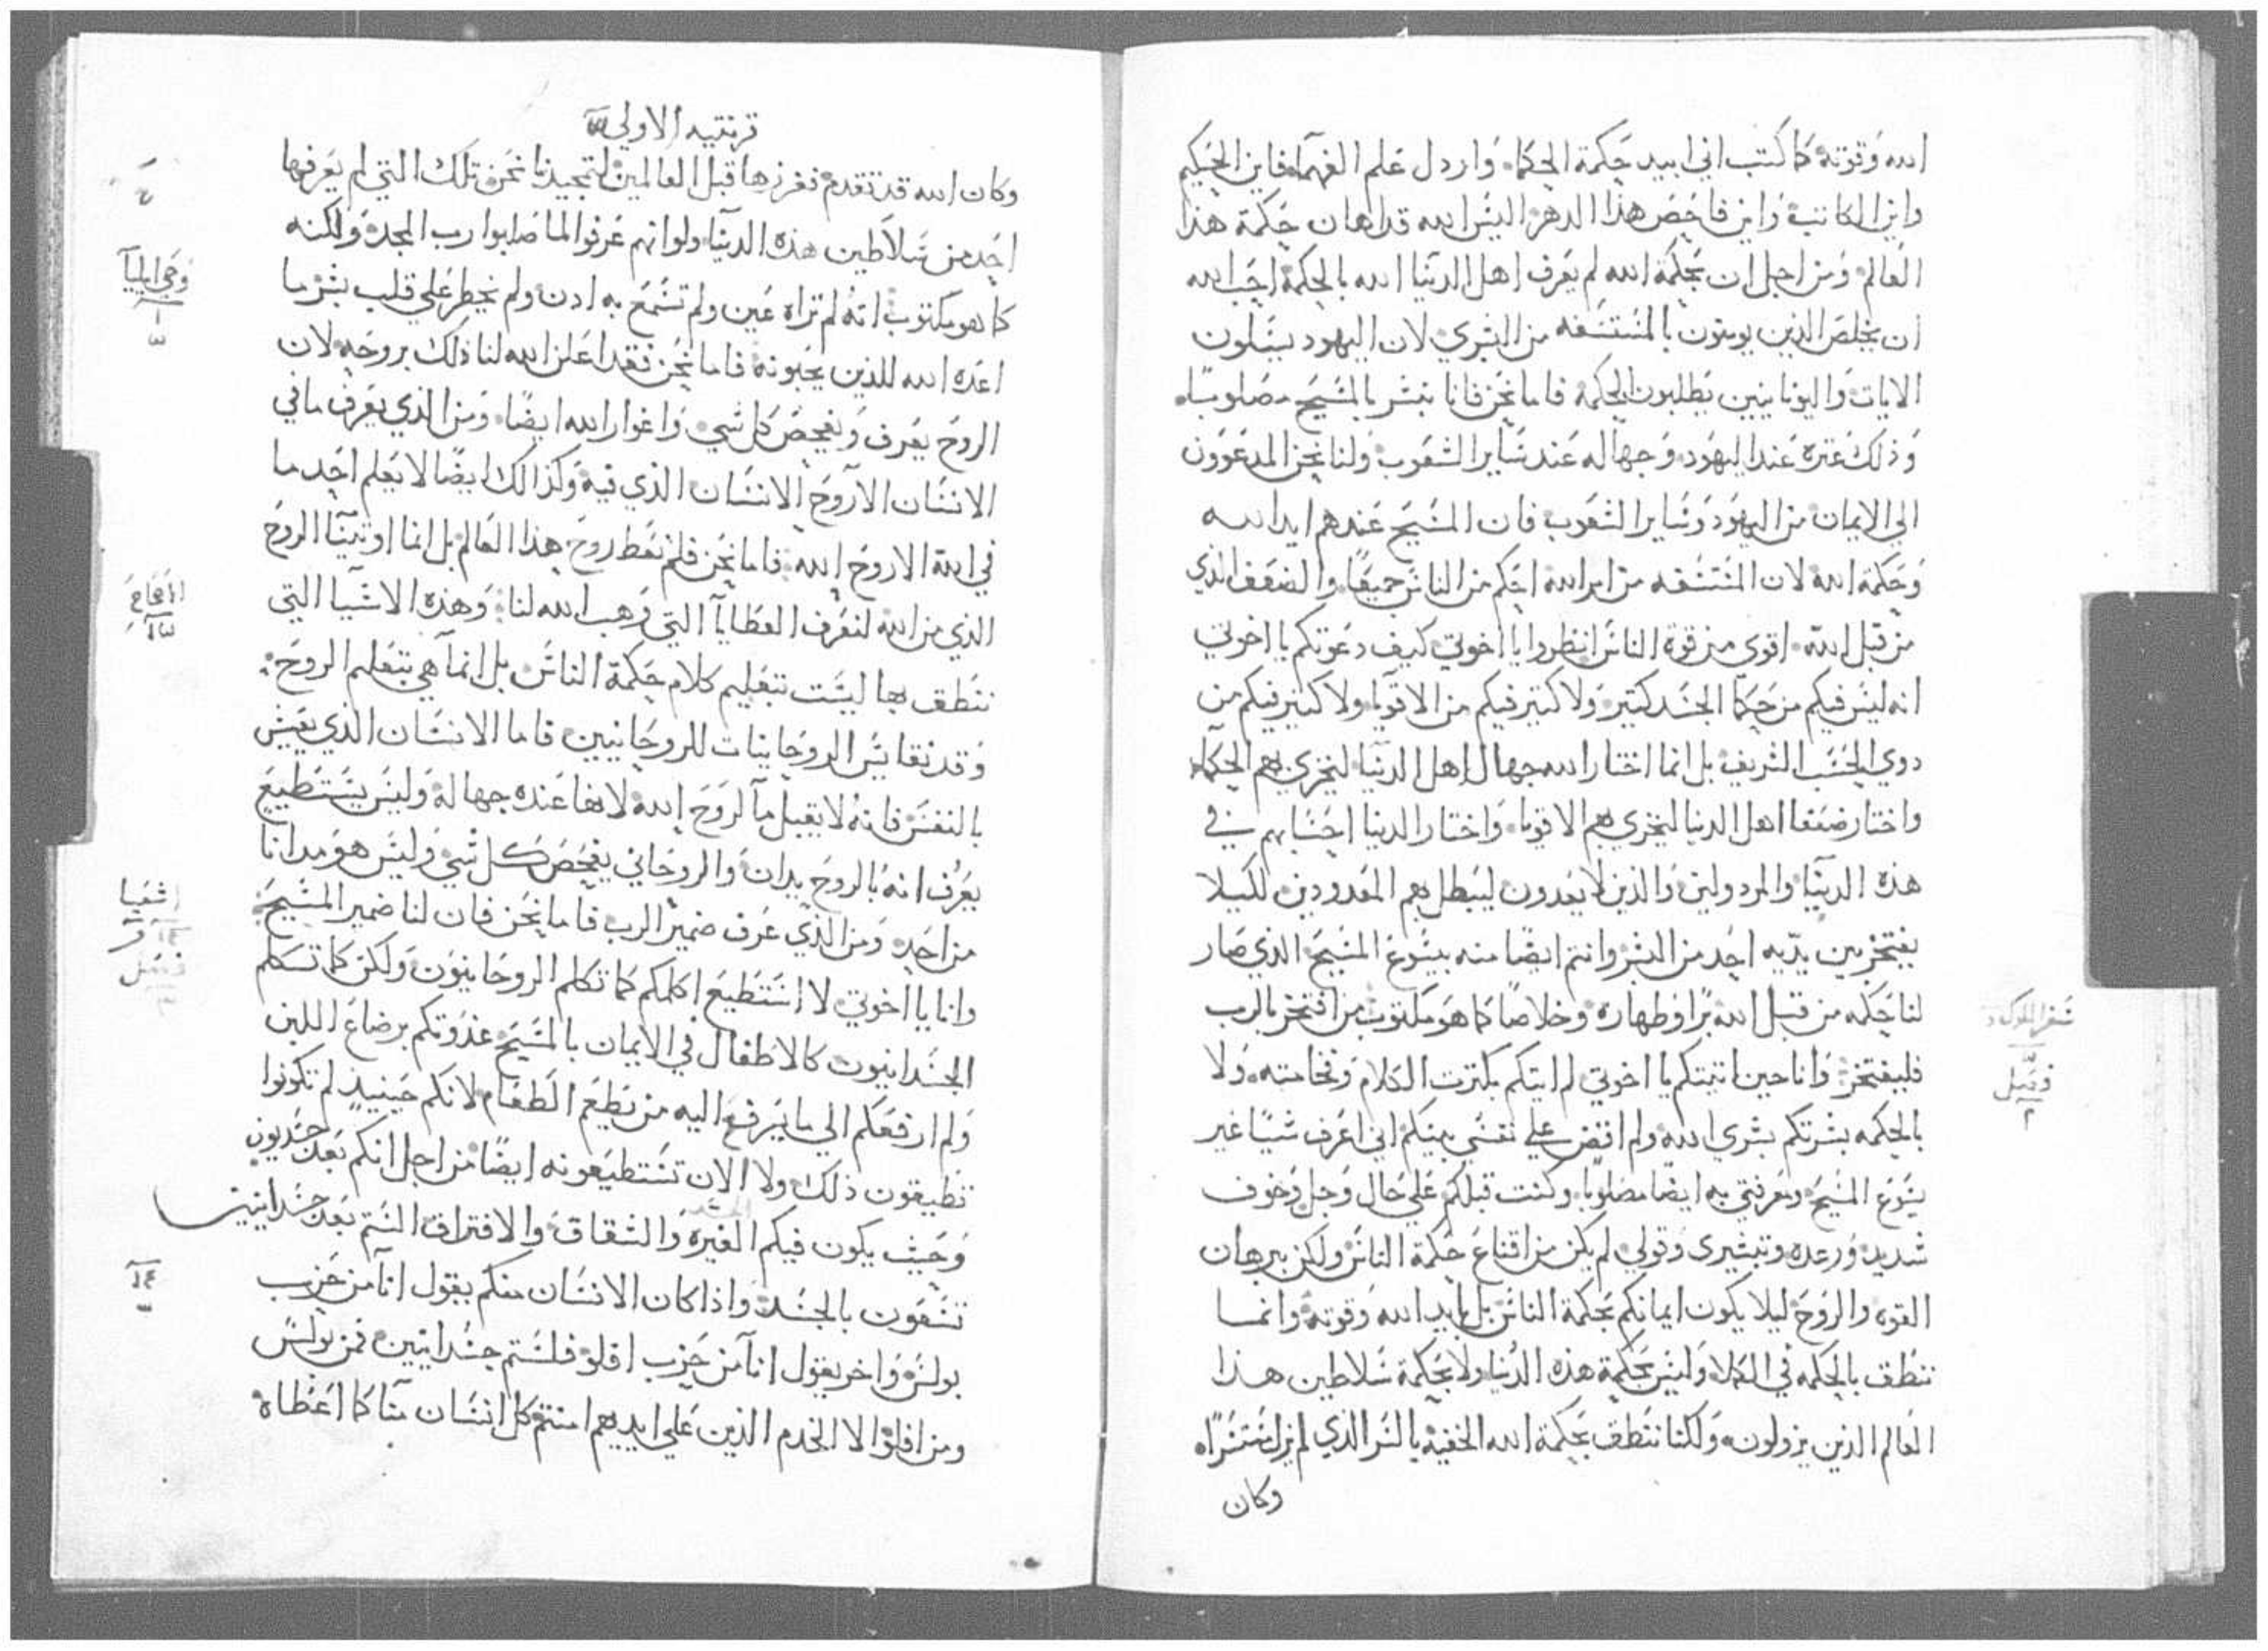 الله وقوته كما كتب اني ابيد حكمة الحكما، واردل علم الفهما، فاين الحكيم
واين الكاتب واين فاحص هذا الدهر اليس الله قد اهان حكمة هذا
العالم ومن اجل ان بحكمة الله لم يعرف اهل الدنيا الله بالحكمة احب الله
ان يخلص الذين يومنون بالمستسفه من البشري لان اليهود يسلون
الايات واليونانيين يطلبون الحكمة فاما نحن فانا نبشر بالمسيح مصلوبا،
وذلك عتره عند اليهود وجهاله عند ساير الشعوب ولنا نحن المدعوون
الي الايمان من اليهود وساير الشعوب فان المسيح عندهم ايد الله
وحكمة الله لان المستسفه من امر الله احكم من الناس جميعا، والضعف الذي
من قبل الله، اقوي من قوة الناس انظروا يا اخوتي كيف دعوتكم يا اخوتي
انه ليس فيكم من حكما الجسد كتير ولا كتير فيكم من الاقويا، ولا كتير فيكم من
دوي الحسب الشريف بل انما اختار الله جهال اهل الدنيا ليخزي بهم الحكما،
واختار ضعفا اهل الدنيا ليخزي بهم الاقويا، واختار الدنيا احسابهم في
هذه الدنيا والمردولين والذين لا يعدون ليبطل بهم المعدودين لكيلا
يفتخر بين يديه احد من البشر وانتم ايضا منه بيسوع المسيح الذي صار
لنا حكمه من قبل الله برا وطهاره وخلاصا كما هو مكتوب من افتخر بالرب
فليفتخر وانا حين اتيتكم يا اخوتي لم ايتكم بكترت الكلام وفخامته، ولا
بالحكمه بشرتكم بشري الله ولم اقض علي نفسي بينكم اني اعرف شيا غير
يسوع المسيح ومعرفتي به ايضا مصلوبا، وكنت قبلكم علي حال وجل وخوف
شديد ورعده وتبشيري وقولي لم يكن من اقناع حكمة الناس ولكن ببرهان
القوه والروح ليلا يكون ايمانكم بحكمة الناس بل بايد الله وقوته وانما
ننطق بالحكمه في الكملا وليس بحكمة هذه الدنيا ولا بحكمة سلاطين هذا
العالم الذين يزولون، ولكنا ننطق بحكمة الله الخفيه بالسر الذي لم يزل مستترا،
وكان
سفر الملوك
فصل
٢
قرنتيه الاولي
وكان الله قد تقدم ففرزها قبل العالمين لتمجيدنا نحن تلك التي لم يعرفها
احد من سلاطين هذه الدنيا ولو انهم عرفوا لما صلبوا رب المجد ولكنه
كما هو مكتوب انه لم تراه عين ولم تسمع به ادن ولم يخطر علي قلب بشر ما
اعده الله للذين يحبونه فاما نحن فقد اعلن الله لنا ذلك بروحه لان
الروح يعرف ويفحص كل شي، واغوار الله ايضا، ومن الذي يعرف ما في
الانسان الا روح الانسان الذي فيه وكذالك ايضا لا يعلم احد ما
في الله الا روح الله فاما نحن فلم نعط روح هذا العالم بل انما اوتينا الروح
الذي من الله لنعرف العطايا التي وهب الله لنا وهذه الاشيا التي
ننطق بها ليست بتعليم كلام حكمة الناس بل انما هي بتعليم الروح
وقد نقايس الروحانيات للروحانيين فاما الانسان الذي يعيش
بالنفس فانه لا يقبل ما لروح الله لانها عنده جهاله وليس يستطيع
يعرف انه بالروح يدان والروحاني يفحص كل شي وليس هو مدانا
من احد ومن الذي عرف ضمير الرب فاما نحن فان لنا ضمير المسيح
وانا يا اخوتي لا استطيع اكلمكم كما تكلم الروحانيون ولكن كما تكلم
الجسدانيون كالاطفال في الايمان بالمسيح غذوتكم برضاع اللبن
ولم ارفعكم الي ما يرفع اليه من يطعم الطعام لانكم حينيذ لم تكونوا
تطيقون ذلك ولا الان تستطيعونه ايضا من اجل انكم بعد جسديون
وحيث يكون فيكم الغيره والشقاق والافتراق الستم بعد جسدانيين
تسعون بالجسد واذا كان الانسان منكم يقول انا من حزب
بولس واخر يقول انا من حزب افلو فلستم جسدانيين فمن بولس
ومن افلو الا الخدم الذين علي ايديهم امنتم كل انسان منا كما اعطاه
وحي ايليا
١
٣
الاصحاح
اشعيا
١٤